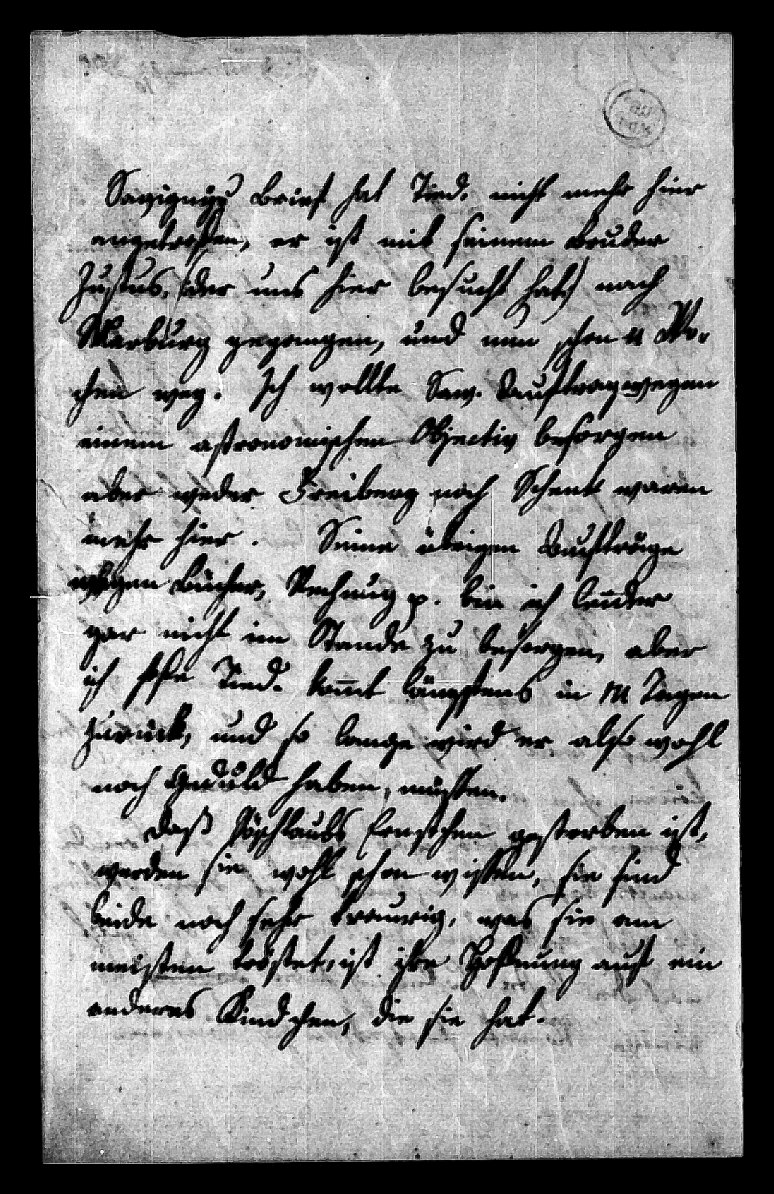 Savignys Brief hat Tied. nicht mehr hier
angetroffen, er ist mit seinem Bruder
Justus, (der uns hier besucht hat) nach
Marburg gegangen, und nun schon 4 Wo-
chen weg. Ich wollte Sav. Auftrag wegen
einem astronomischen Objectiv besorgen
aber weder Freiberg noch Schenk waren
mehr hier. Seine übrigen Aufträge
wegen Bücher, Rechnung p. bin ich leider
gar nicht im Stande zu besorgen, aber
ich hoffe Tied. kom̅t längstens in 14 Tagen
zurück, und so lange wird er also wohl
noch Geduld haben, müssen.
Daß Röschlaubs Ernstchen gestorben ist,
werden sie wohl schon wissen, sie sind
beide noch sehr traurig, was sie am
meisten tröstet, ist ihre Hoffnung auf ein
anderes Kindchen, die sie hat.